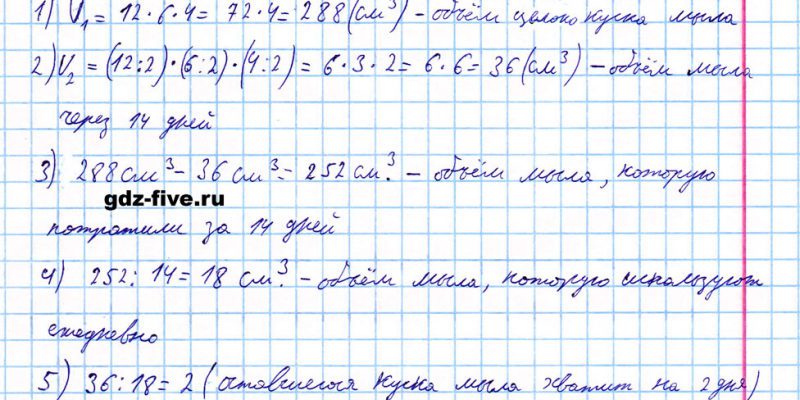 1) V₁ = 12·6·4 = 72·4 = 288 (см³) – объём целого куска мыла
2) V₂ = (12:2)·(6:2)·(4:2) = 6·3·2 = 6·6 = 36 (см³) – объём мыла
через 14 дней
3) 288 см³ – 36 см³ = 252 см³. – объём мыла, которую
gdz-five.ru
потратили за 14 дней
4) 252 : 14 = 18 см³. – объём мыла, которую используют
ежедневно
5) 36 : 18 = 2 (оставшегося куска мыла хватит на 2 дня)